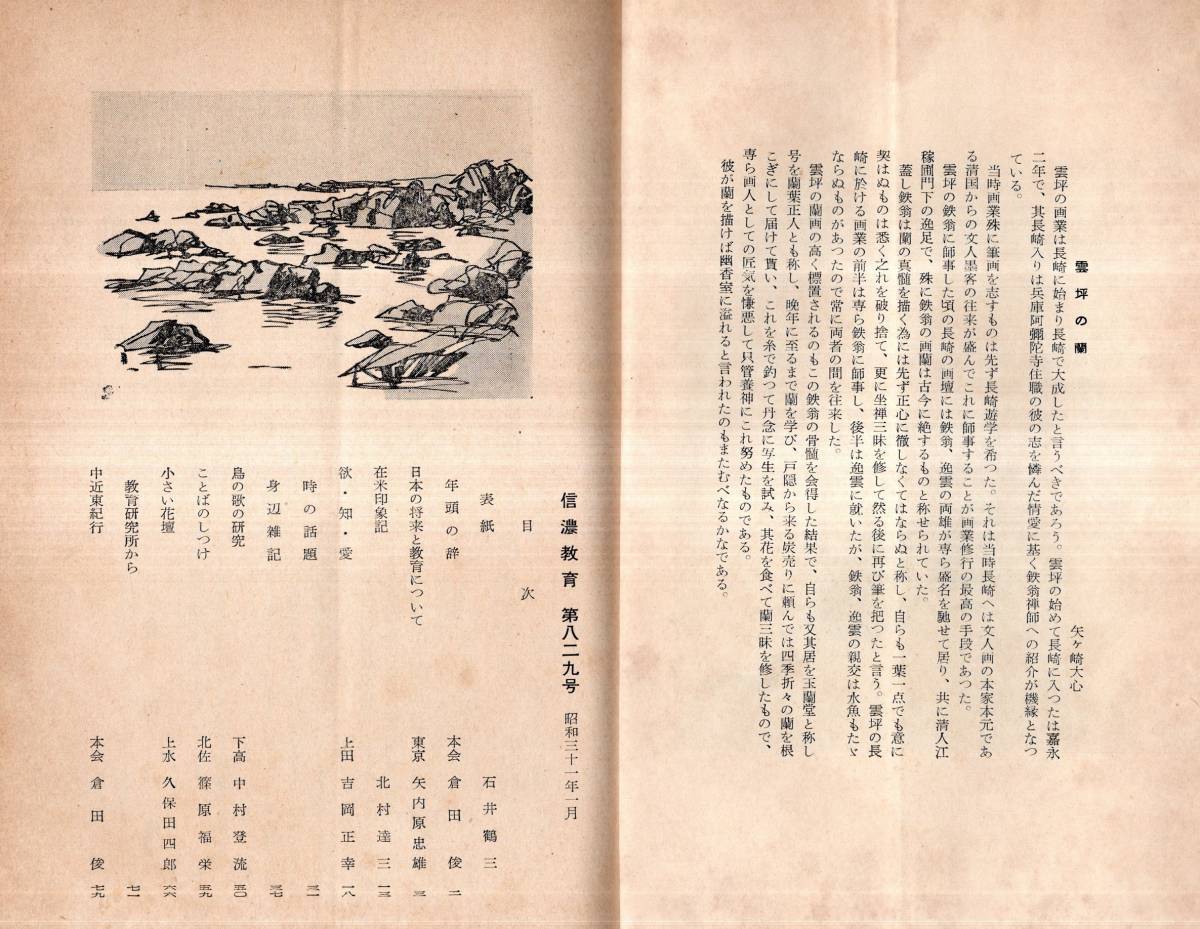 雲坪の蘭
矢ケ崎大心
雲坪の画業は長崎に始まり長崎で大成したと言うべきであろう。雲坪の始めて長崎に入つたは嘉永
二年で、其長崎入りは兵庫阿彌陀寺住職の彼の志を憐んだ情愛に基く鉄翁禅師への紹介が機縁となつ
ている。
当時画業殊に筆画を志すものは先ず長崎遊学を希つた。それは当時長崎へは文人画の本家本元であ
る清国からの文人墨客の往来が盛んでこれに師事することが画業修行の最高の手段であつた。
雲坪の鉄翁に師事した頃の長崎の画壇には鉄翁、逸雲の両雄が専ら盛名を馳せて居り、共に清人江
稼圃門下の逸足で、殊に鉄翁の画蘭は古今に絶するものと称せられていた。
蓋し鉄翁は蘭の真髄を描く為には先ず正心に徹しなくてはならぬと称し、自らも一葉一点でも意に
契はぬものは悉く之れを破り捨て、更に坐禅三昧を修して然る後に再び筆を把つたと言う。雲坪の長
崎に於ける画業の前半は専ら鉄翁に師事し、後半は逸雲に就いたが、鉄翁、逸雲の親交は水魚もたゞ
ならぬものがあつたので常に両者の間を往来した。
雲坪の蘭画の高く標置されるのもこの鉄翁の骨髄を会得した結果で、自らも又其居を玉蘭堂と称し
号を蘭葉正人とも称し、晩年に至るまで蘭を学び、戸隠から来る炭売りに頼んでは四季折々の蘭を根
こぎにして届けて貰い、これを糸で釣つて丹念に写生を試み、其花を食べて蘭三昧を修したもので、
専ら画人としての匠気を悽悪して只管養神にこれ努めたものである。
彼が蘭を描けば幽香室に溢れると言われたのもまたむべなるかなである。
信濃教育 第八二九号 昭和三十一年一月
目次
表紙 石井鶴三
年頭の辞 本会 倉田俊 二
日本の将来と教育について 東京 矢内原忠雄 三
在米印象記 北村達三 一三
欲・知・愛 上田 吉岡正幸 一八
時の話題 三一
身辺雑記 三七
鳥の歌の研究 下高 中村登流 五〇
ことばのしつけ 北佐 篠原福栄 五九
小さい花壇 上水 久保田四郎 六六
教育研究所から 七一
中近東紀行 本会 倉田俊 七九